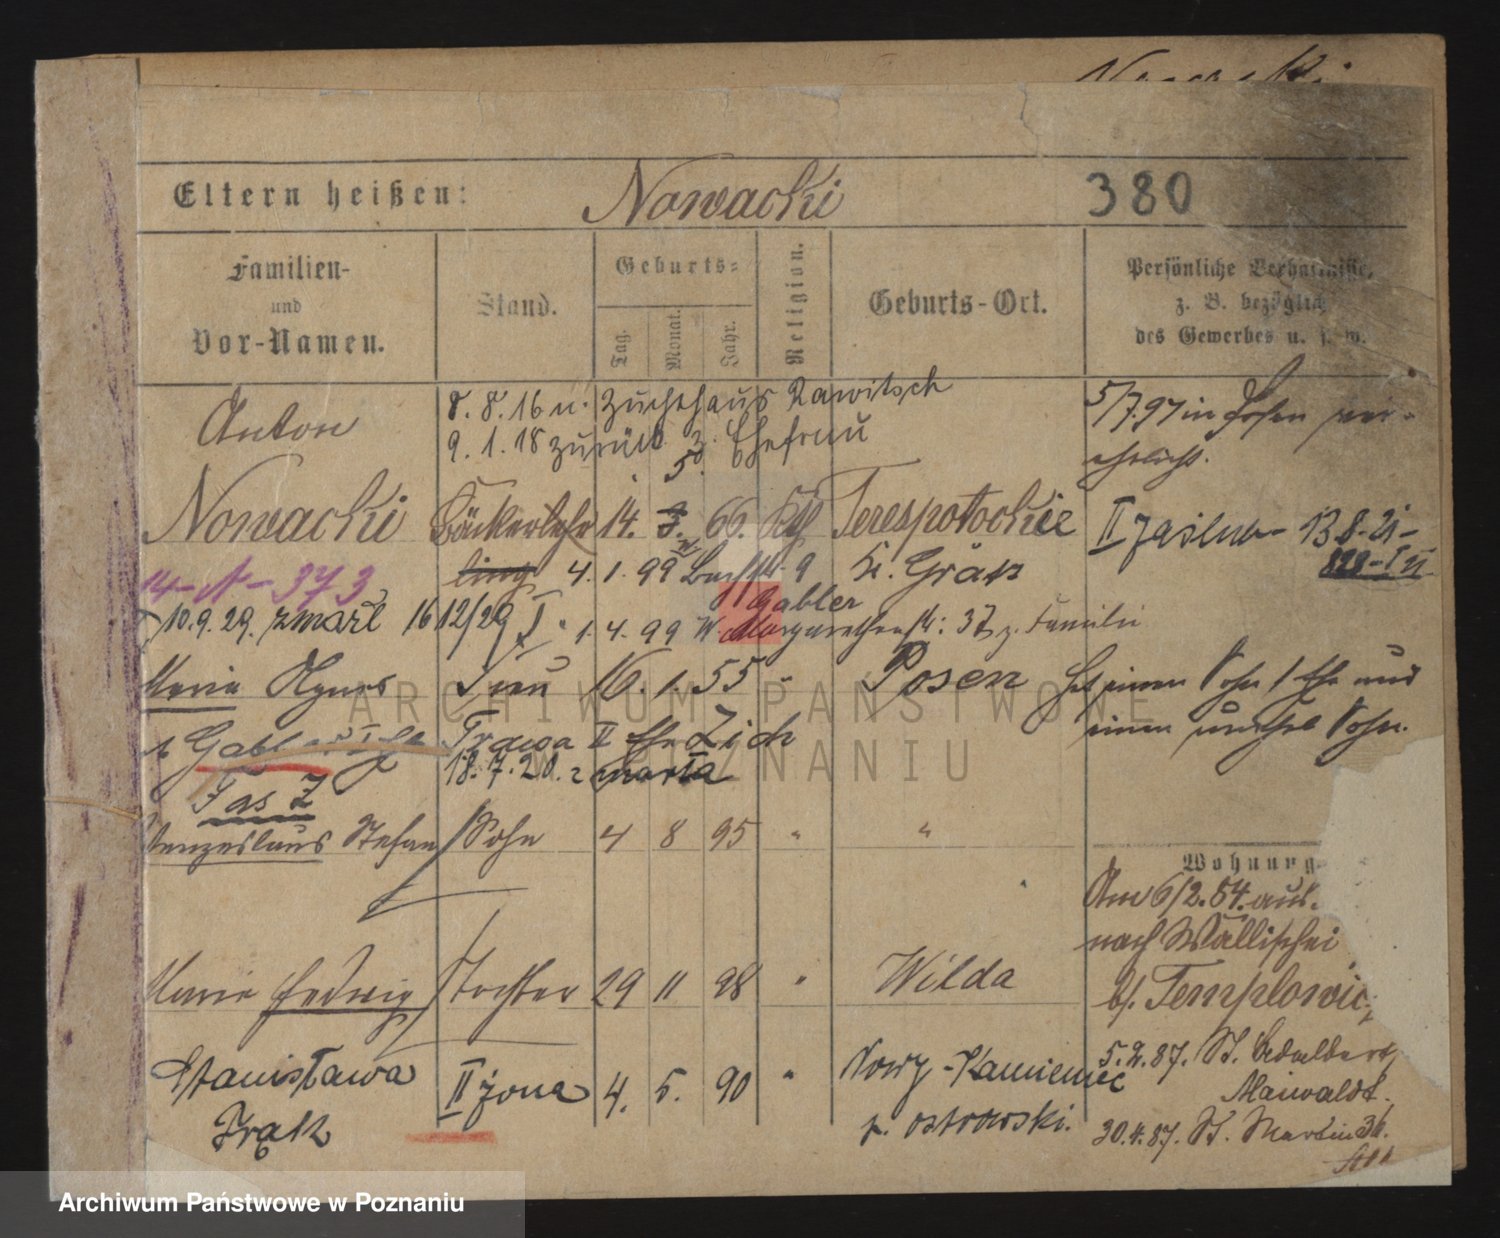 Eltern heißen: Nowacki 380
Familien- und Vor-Namen.
Stand.
Geburts-
Tag. Monat. Jahr.
Religion.
Geburts-Ort.
Persönliche Verhältnisse,
z. B. bezüglich
des Gewerbes u. s. w.
Anton
8. 8. 16 u. Zuchthaus Rawitsch
9. 1. 18 zurück z. Ehefrau
5/7.97 in Posen ver-
ehelicht.
5.
Nowacki Bäckerlehr 14. 3. 66. Kth Terespotockie
ling
II żaślub 13.8.21-
14-N-373
4. 1. 99
9 Kr. Grätz
10.9.29. zmarł 16 12/29
Gabler
1. 4. 99 W. Margarethenstr: 37 z. Familie
Maria Agnes Frau 16. 1. 55 " Posen
Hat einen Sohn I Ehe und
einen unehel Sohn.
Gabler I Ehe
Frąsa II Ehe Zich
18. 7. 20. zmarła
Wenzeslaus Stefan Sohn 4 8 95 " "
Wohnung
Am 6/2.84. aus.
nach Wallischei
b/. Templowicz
Maria Hedwig Tochter 29 11 98 " Wilda
Stanisława II żona 4. 5. 90 " Nowy-Kamieniec
p. ostrowski.
5.2.87. St. Adalbert
Maiwaldt.
30.4.87. St. Martin 36.
ARCHIWUM PAŃSTWOWE
W POZNANIU
Archiwum Państwowe w Poznaniu